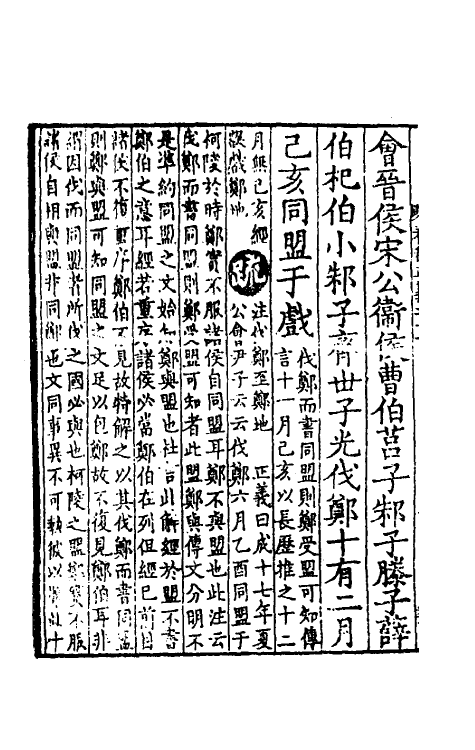 會晉侯宋公衞侯曹伯莒子邾子滕子薛
伯杞伯小邾子齊世子光伐鄭十有二月
己亥同盟于戲
伐鄭而書同盟則鄭受盟可知傳
言十一月己亥以長歷推之十二
月無己亥經
誤戲鄭地
疏
注伐鄭至鄭地 正義曰成十七年夏
公會尹子云云伐鄭六月乙酉同盟于
柯陵於時鄭實不服諸侯自同盟耳鄭不與盟也此注云
伐鄭而書同盟則鄭受盟可知者此盟鄭與傳文分明不
是準約同盟之文始知鄭與盟也杜言此解經於盟不書
鄭伯之意耳經若重序諸侯必當鄭伯在列但經已前目
諸侯不復重序鄭伯不見故特解之以其伐鄭而書同盟
則鄭與盟可知同盟之文足以包鄭故不復見鄭伯耳非
謂因伐而同盟者所伐之國必與也柯陵之盟鄭實不服
諸侯自相與盟非同鄭也文同事異不可執彼以難此十